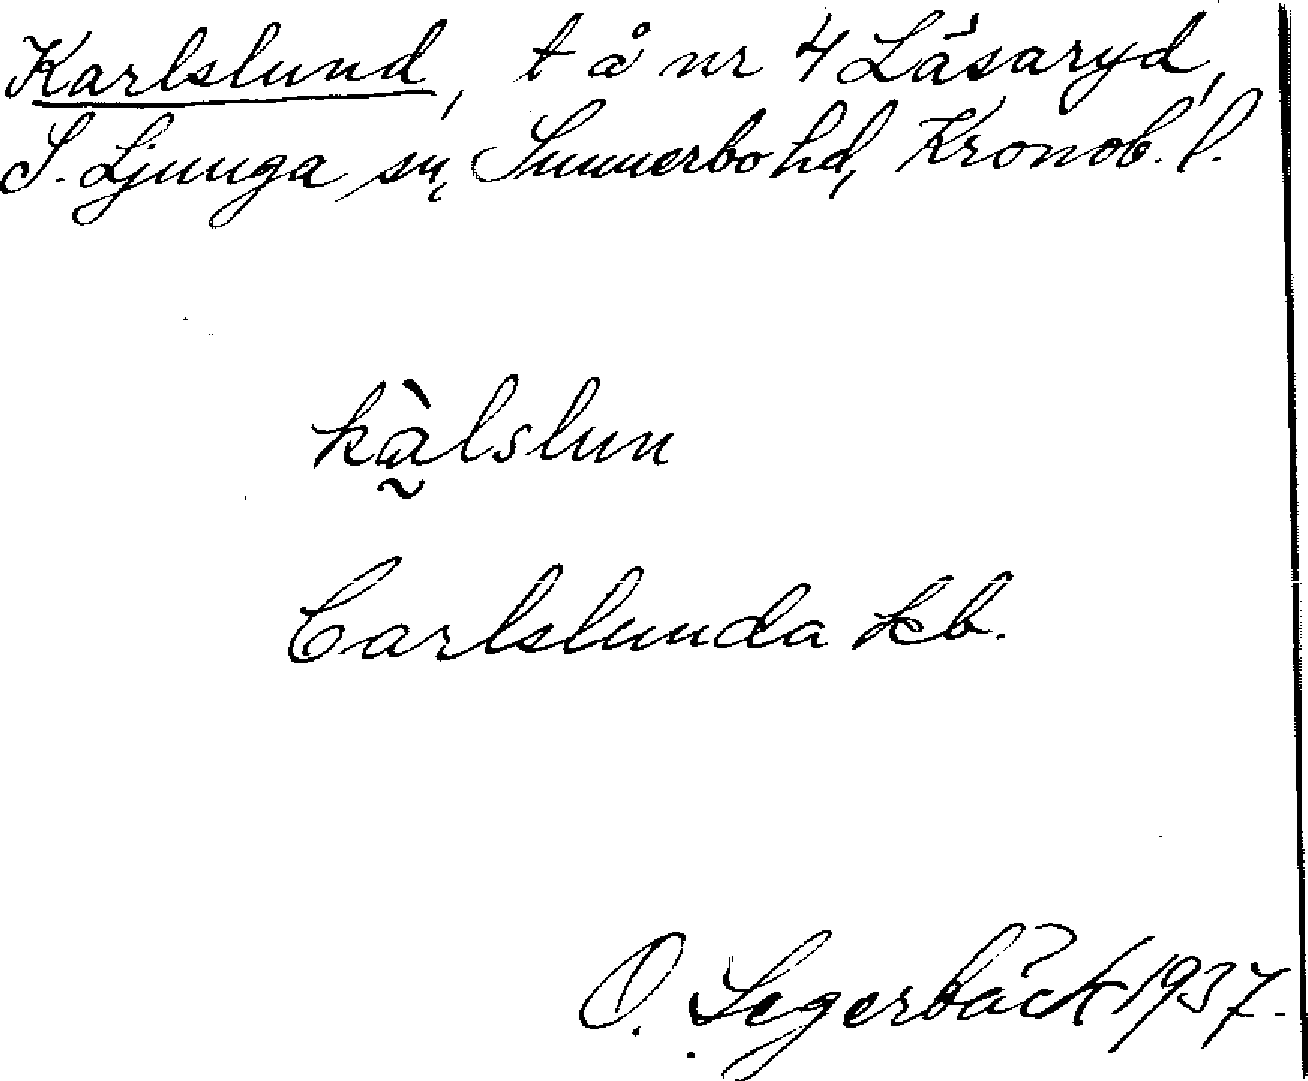 Karlslund, t å nr 4 Låsaryd,
S. Ljunga sn, Sunnerbo hd, Kronob. l.
kàlslun
Carlslunda kb.
O. Segerbäck 1937.